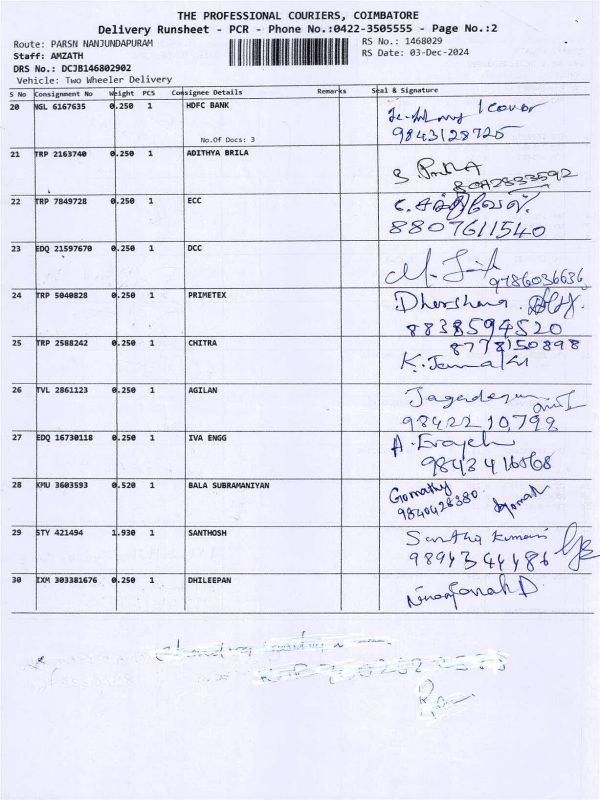 THE PROFESSIONAL COURIERS, COIMBATORE
Delivery Runsheet - PCR - Phone No.:0422-3505555 - Page No.:2
Route: PARSN NANJUNDAPURAM
RS No.: 1468029
Staff: AMZATH
RS Date: 03-Dec-2024
DRS No.: DCJB146802902
Vehicle: Two Wheeler Delivery
S No Consignment No Weight PCS Consignee Details Remarks Seal & Signature
20 NGL 6167635 0.250 1 HDFC BANK
No.Of Docs: 3
9843128725
21 TRP 2163740 0.250 1 ADITHYA BRILA
22 TRP 7849728 0.250 1 ECC
8807611540
23 EDQ 21597670 0.250 1 DCC
9786036636
24 TRP 5040828 0.250 1 PRIMETEX
Dharshana
8838594520
25 TRP 2588242 0.250 1 CHITRA
8778150898
26 TVL 2861123 0.250 1 AGILAN
9842210798
27 EDQ 16730118 0.250 1 IVA ENGG
28 KMU 3603593 0.520 1 BALA SUBRAMANIYAN
Gomathy
9840428380
29 STY 421494 1.930 1 SANTHOSH
Santha Kumari
9894344486
30 IXM 303381676 0.250 1 DHILEEPAN